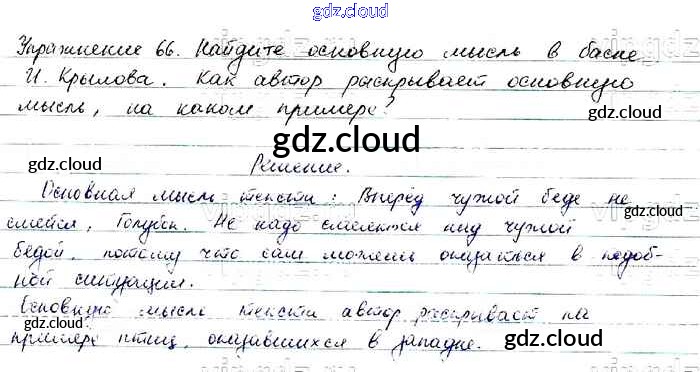 gdz.cloud
Упражнение 66. Найдите основную мысль в басне
И. Крылова. Как автор раскрывает основную
мысль, на каком примере?
gdz.cloud
gdz.cloud gdz.cloud
Решение.
Основная мысль текста: Вперёд чужой беде не
gdz.cloud
смейся, Голубок. Не надо смеяться над чужой
gdz.cloud
бедой, потому что сам можешь оказаться в подоб-
ной ситуации.
Основную мысль текста автор раскрывает на
gdz.cloud
примере птиц, оказавшихся в западне. gdz.cloud